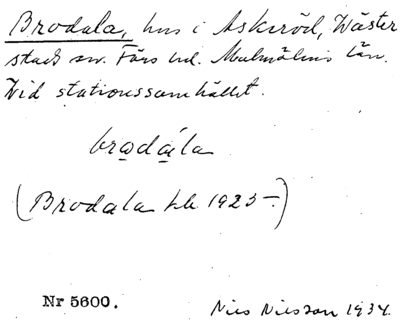 Brodala, hus i Askeröd, Väster
stads sn. Färs hd. Malmöhus län.
Vid stationssamhället.
brodála
(Brodala tlr 1925-.)
Nr 5600.
Nils Nilsson 1934.